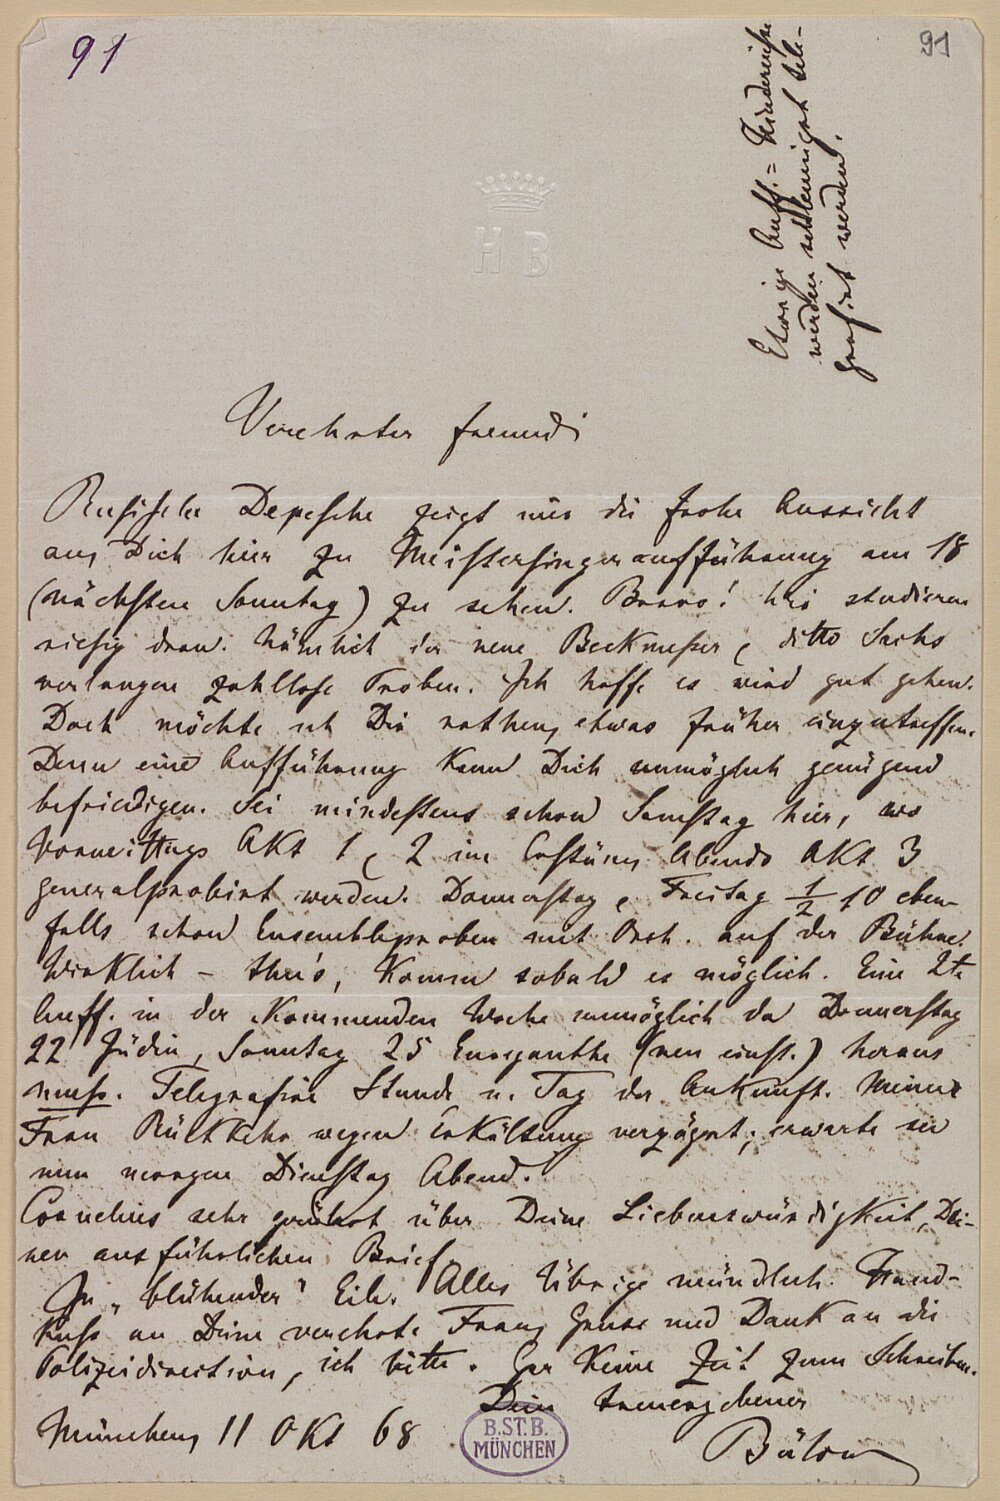 91
91
Etwaige Auff.=Hindernisse
werden schleunigst tele-
grafirt werden.
H B
Verehrter Freund
Rusische Depesche zeigt mir die frohe Aussicht
an, Dich hier zu Meistersingeraufführung am 18
(nächsten Sonntag) zu sehen. Bravo! Wir studieren
riesig dran. Nämlich der neue Beckmesser, ditto Sachs
verlangen zahllose Proben. Ich hoffe es wird gut gehen.
Doch möchte ich Dir rathen, etwas früher einzutreffen.
Denn eine Aufführung kann Dich unmöglich genügend
befriedigen. Sei mindestens schon Samstag hier, wo
Vormittags Akt 1, 2 im Costüm, Abends Akt 3
generalprobirt werden. Donnerstag, Freitag ½ 10 eben-
falls schon Ensembleproben mit Orch. auf der Bühne.
Wirklich – thu's, komm sobald es möglich. Eine 2te
Auff. in der kommenden Woche unmöglich da Donnerstag
22 Jüdin, Sonntag 25 Euryanthe (neu einst.) heraus
muss. Telegrafire Stunde u. Tag der Ankunft. Meiner
Frau Rückkehr wegen Erkältung verzögert; erwarte sie
nun morgen Dienstag Abend.
Cornelius sehr gerührt über Deine Liebenswürdigkeit, Dei-
nen ausführlichen Brief
In „blühender" Eile. Alles Übrige mündlich. Hand-
kuss an Deine verehrte Frau, Grüsse und Dank an die
Polizeidirection, ich bitte. Gar keine Zeit zum Schreiben.
Dein treuergebener
München, 11 Okt 68
Bülow
B.ST.B.
MÜNCHEN